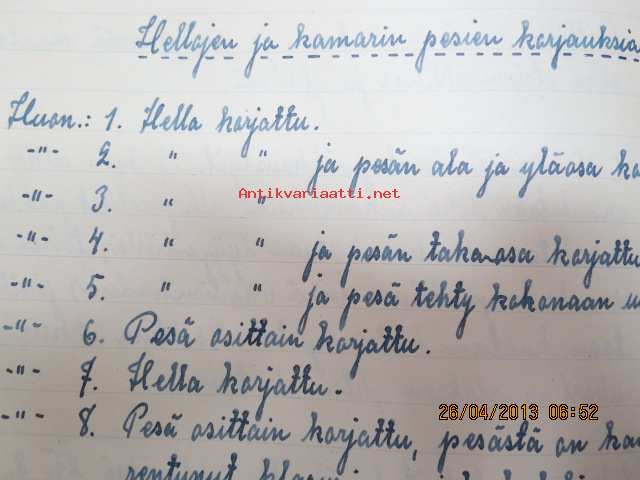 Hellojen ja kamarin pesien korjauksia
Huon.: 1. Hella korjattu.
-"- 2. " " ja pesän ala ja yläosa
Antikvariaatti.net
-"- 3. " "
-"- 4. " " ja pesän taka-osa korjattu
-"- 5. " " ja pesä tehty kokonaan
-"- 6. Pesä osittain korjattu.
-"- 7. Hella korjattu.
26/04/2013 06:52
-"- 8. Pesä osittain korjattu, pesästä on